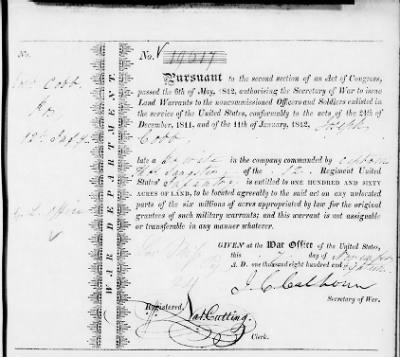 No.
No. 19517
Cobb,
WAR DEPARTMENT.
Pursuant to the second section of an Act of Congress,
passed the 6th of May, 1812, authorising the Secretary of War to issue
Land Warrants to the noncommissioned Officers and Soldiers enlisted in
the service of the United States, conformably to the acts of the 24th of
December, 1811, and of the 11th of January, 1812, Joseph
Cobb
late a private in the company commanded by
of the 12 Regiment United
States' Infantry is entitled to ONE HUNDRED AND SIXTY
ACRES OF LAND, to be located agreeably to the said act on any unlocated
parts of the six millions of acres appropriated by law for the original
grantees of such military warrants; and this warrant is not assignable
or transferable in any manner whatever.
GIVEN at the War Office of the United States,
this day of
A. D. one thousand eight hundred and
J. C. Calhoun
Secretary of War.
Registered, Nat. Cutting.
Clerk.